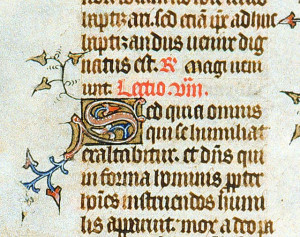 baptizari. sed etiã q̃r adhuc
baptizandus uenire dig
natus est. R̃. magi ueni
unt. Lectio viii.
Sed quia omnis
qui se humiliat
exaltabitur. et dñs qui
in forma hominis ppter
hoĩes instruendos humi
lis apparuit. mox a deo pa